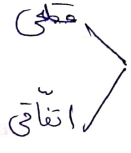 قطعی
اتّفاقی